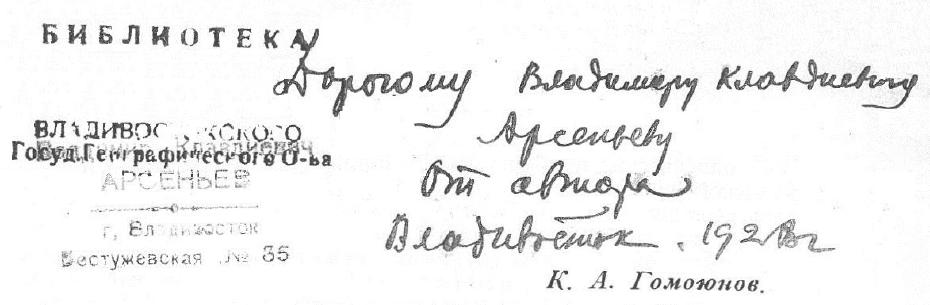 БИБЛИОТЕКА
Дорогому Владимиру Клавдиевичу
Арсеньеву
От автора
Владивосток. 1928 г
ВЛАДИВОСТОКСКОГО
Госуд. Географического О-ва
Владимир Клавдиевич
АРСЕНЬЕВ
г. Владивосток
Бестужевская № 35
К. А. Гомоюнов.